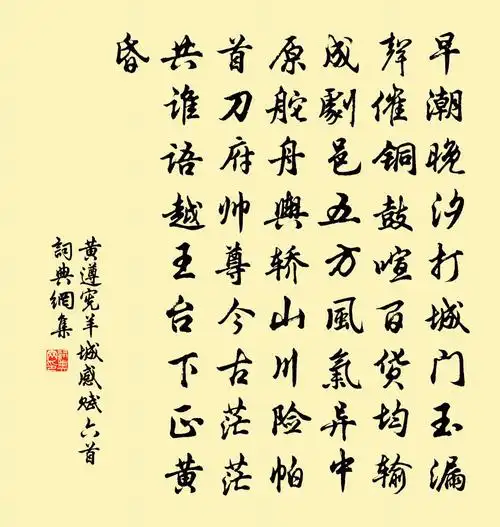 早潮晚汐打城门玉漏
聲催铜鼓喧百货均输
成劇邑五方風氣异中
原舵舟輿轿山川险帕
首刀府帅尊今古茫茫
共谁语越王台下正黄
昏
黄遵宪羊城感赋六首
詞典網集